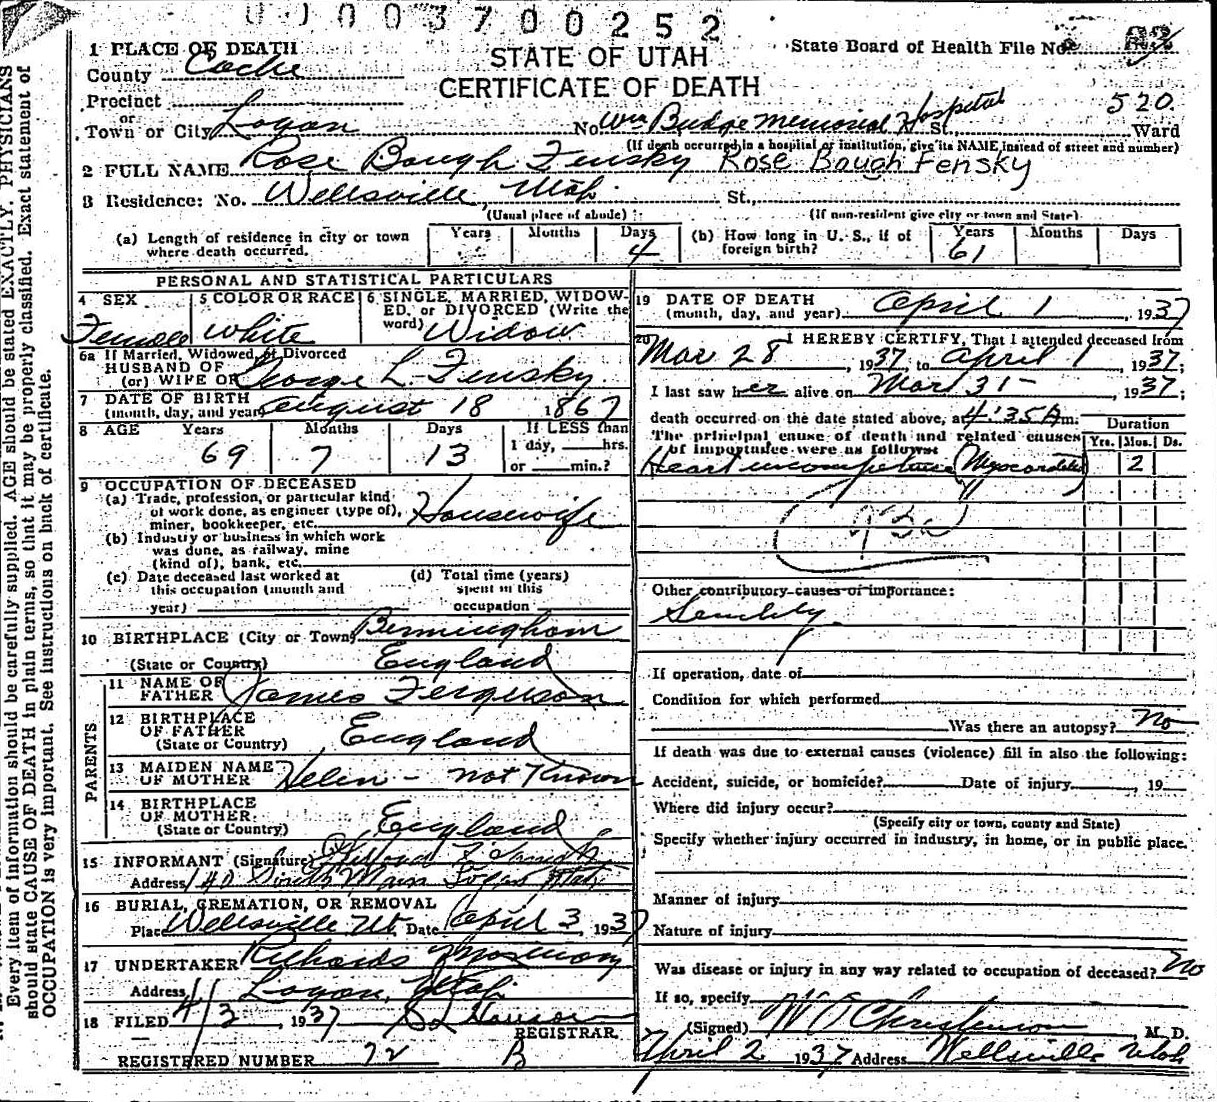 0 0 0 0 3 7 0 0 2 5 2
1 PLACE OF DEATH
STATE OF UTAH
CERTIFICATE OF DEATH
State Board of Health File No.
County Cache
Precinct
or
Town or City Logan No. Wm Budge Memorial Hospital St., 520 Ward
(If death occurred in a hospital or institution, give its NAME instead of street and number)
2 FULL NAME Rose Baugh Fensky Rose Baugh Fensky
3 Residence: No. Wellsville, Utah St.,
(Usual place of abode) (If non-resident give city or town and State)
(a) Length of residence in city or town where death occurred. Years Months Days 4
(b) How long in U. S., if of foreign birth? Years 61 Months Days
PERSONAL AND STATISTICAL PARTICULARS
4 SEX Female
5 COLOR OR RACE White
6 SINGLE, MARRIED, WIDOWED, or DIVORCED (Write the word) Widow
6a If Married, Widowed, or Divorced
HUSBAND OF
(or) WIFE OF George L. Fensky
7 DATE OF BIRTH
(month, day, and year) August 18 1867
8 AGE Years 69 Months 7 Days 13 If LESS than 1 day, hrs. or min.?
9 OCCUPATION OF DECEASED
(a) Trade, profession, or particular kind of work done, as engineer (type of), miner, bookkeeper, etc. Housewife
(b) Industry or business in which work was done, as railway, mine (kind of), bank, etc.
(c) Date deceased last worked at this occupation (month and year)
(d) Total time (years) spent in this occupation
10 BIRTHPLACE (City or Town) Birmingham
(State or Country) England
PARENTS
11 NAME OF FATHER James Ferguson
12 BIRTHPLACE OF FATHER
(State or Country) England
13 MAIDEN NAME OF MOTHER Helen - not Known
14 BIRTHPLACE OF MOTHER
(State or Country) England
15 INFORMANT (Signature)
Address 140 South Main Logan Utah
16 BURIAL, CREMATION, OR REMOVAL
Place Wellsville Ut. Date April 3, 1937
17 UNDERTAKER Richards Mortuary
Address Logan, Utah
18 FILED 4/3, 1937
REGISTRAR
REGISTERED NUMBER 72 B
19 DATE OF DEATH
(month, day, and year) April 1, 1937
20 I HEREBY CERTIFY, That I attended deceased from
Mar 28, 1937, to April 1, 1937;
I last saw her alive on Mar 31 -, 1937;
death occurred on the date stated above, at 4:35 A m.
The principal cause of death and related causes of importance were as follows:
Duration
Yrs. Mos. Ds.
Heart incompetence (Myocarditis) 2
Other contributory causes of importance:
Senility
If operation, date of
Condition for which performed
Was there an autopsy? No
If death was due to external causes (violence) fill in also the following:
Accident, suicide, or homicide? Date of injury , 19
Where did injury occur?
(Specify city or town, county and State)
Specify whether injury occurred in industry, in home, or in public place.
Manner of injury
Nature of injury
Was disease or injury in any way related to occupation of deceased? No
If so, specify
(Signed) W O Christenson M. D.
April 2 1937 Address Wellsville Utah
Every item of information should be carefully supplied. AGE should be stated EXACTLY. PHYSICIANS
should state CAUSE OF DEATH in plain terms, so that it may be properly classified. Exact statement of
OCCUPATION is very important. See instructions on back of certificate.